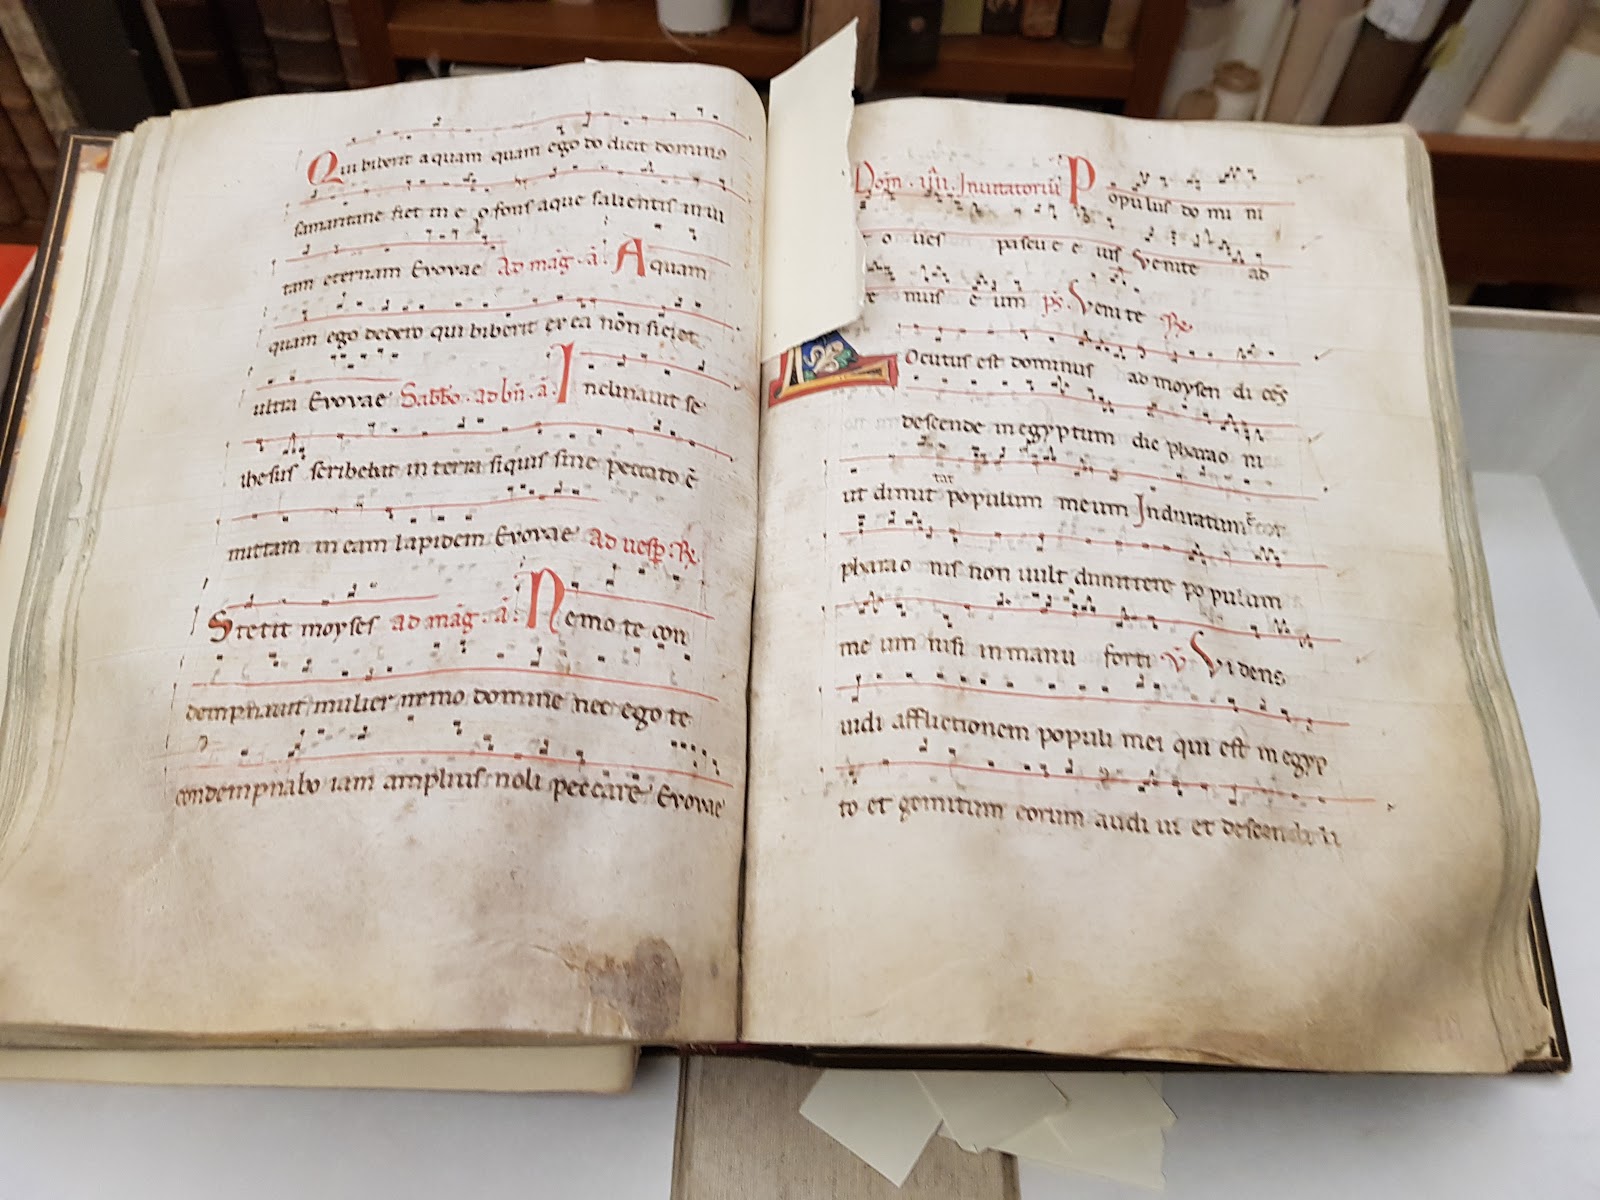 Qui biberit aquam quam ego do dicit dominus
samaritane fiet in eo fons aque salientis in ui
tam eternam Evovae Ad mag. a. Aquam
quam ego dedero qui biberit ex ea non siciet
ultra Evovae Sabbo. ad bn. a. Inclinauit se
ihesus scribebat in terra siquis sine peccato ē
mittam in eam lapidem Evovae Ad uesp. R.
Stetit moyses ad mag. a. Nemo te con
dempnauit mulier nemo domine nec ego te
condempnabo iam amplius noli peccare Evovae
Dom. iiii. Inuitatoriu Populus domini
oues pascue eius Venite ad
mus eum ps. Venite R.
Locutus est dominus ad moysen di cēs
descende in egyptum dic pharaoni
ut dimittat populum meum Induratum ē cor
pharaonis non uult dimittere populum
meum nisi in manu forti V Videns
uidi afflictionem populi mei qui est in egyp
to et gemitum eorum audiui et descendi